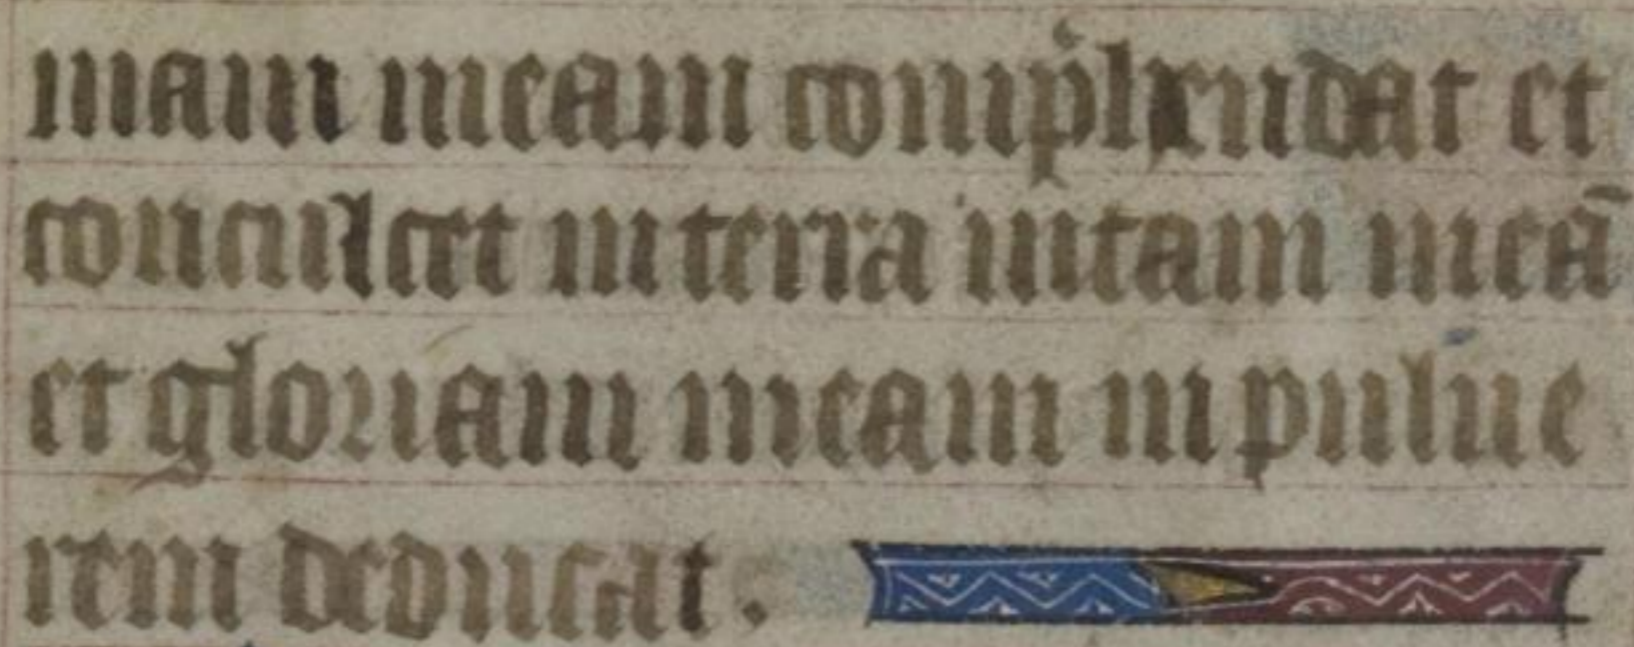 mam meam comp̉hendat et
conculcet in terra uitam meā
et gloriam meam in pulue
rem deducat.